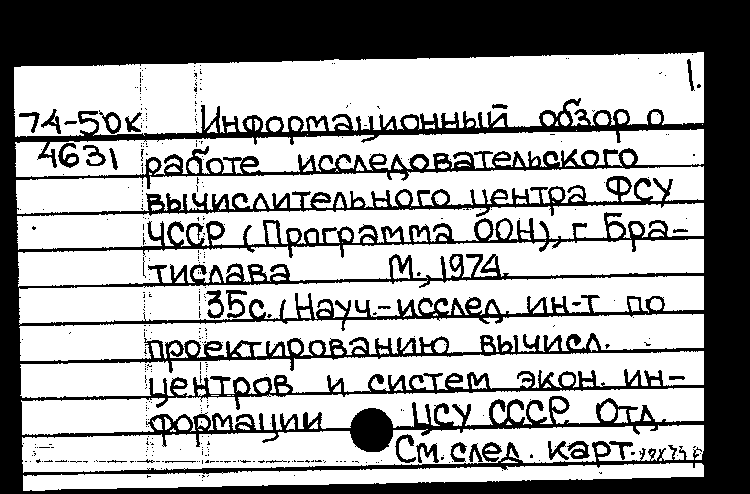 1.
74-50к Информационный обзор о
4631 работе исследовательского
вычислительного центра ФСУ
ЧССР (Программа ООН), г Бра-
тислава М., 1974.
35с. (Науч.-исслед. ин-т по
проектированию вычисл.
центров и систем экон. ин-
формации ЦСУ СССР. Отд.
См. след. карт.